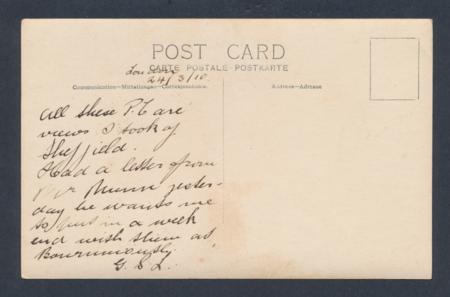 POST CARD
CARTE POSTALE-POSTKARTE
London
24/3/10
Communication-Mitteilungen-Correspondence.
Address-Adresse
All these P.C are
views I took of
Sheffield.
Had a letter from
Mr Munn yester-
day he wants me
to put in a week
end with them at
Bournemouth
G. S. L.